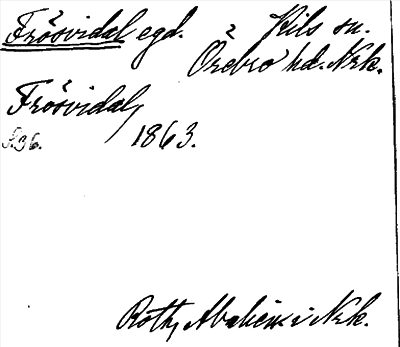 Frösvidal egd. Kils sn.
Örebro hd. Nrk.
Frösvidal,
s. 36. 1863.
Roth, i Nrk.